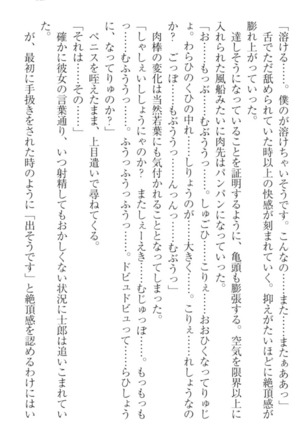 「溶ける……。僕のが溶けちゃいそうです。また……またぁああっ」
舌でただ舐められていた時以上の快感が刻まれていく。抑えがたいほどに快感が
膨れ上がっていった。
達しそうになっていることを証明するように、亀頭も膨張する。空気を限界以上に
入れられた風船みたいに肉先はパンパンになっていた。
「お……もっぶ……むぶぅっ……。しゅごひ……こりぇ……おおひくなってりゅじ
ょ。わらひのくひの中れ……しりょうのが、大きく……。こりぇ……れしょうなの
か? ごっぽ……もぶううっ……んっんっ……むぶうっ」
肉棒の変化は当然若葉にも気付かれることとなってしまった。
「しゃしぇいししょうにゃのか? またしぇーえき……むじゅっぽ……。もっもも
っ……むふううっ……。ふうっふうっふうっ……。ドビュドビュって……らひしょう
に、なってりゅのか?」
ペニスを咥えたまま、上目遣いで尋ねてくる。
「それは……その……」
確かに彼女の言葉通り、いつ射精してもおかしくない状況に士郎は追いこまれてい
た。
が、最初に手扱きをされた時のように「出そうです」と絶頂感を認めるわけにはい